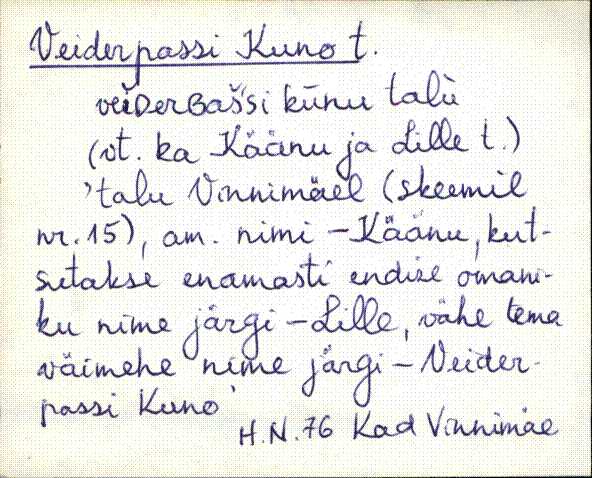 Veiderpassi Kuno t.
veiDerBaš̀si kùnu talù
(vt. ka Käänu ja Lille t.)
'talu Vinnimäel (skeemil
nr. 15), am. nimi - Käänu, kut-
sutakse enamasti endise omani-
ku nime järgi - Lille, vähe tema
väimehe nime järgi - Veider-
passi Kuno'
H.N. 76 Kad Vinnimäe